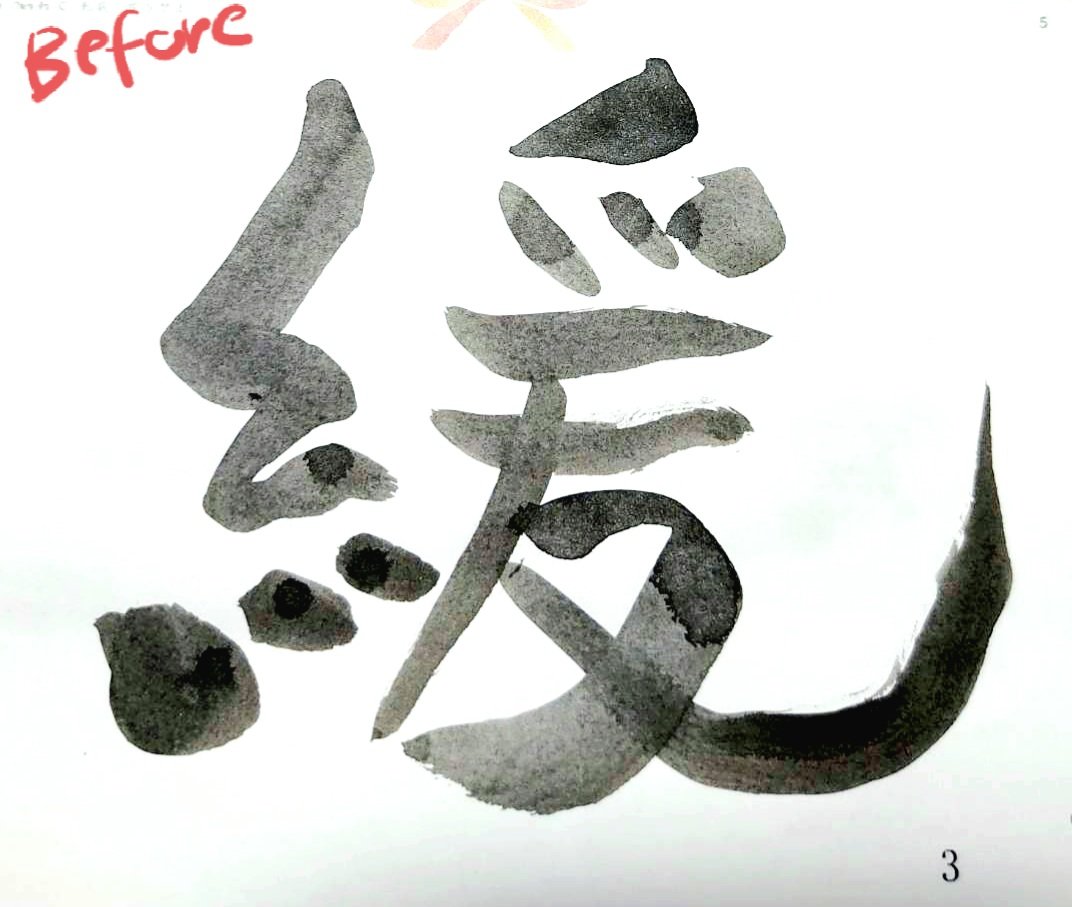 Before
5
緩
3